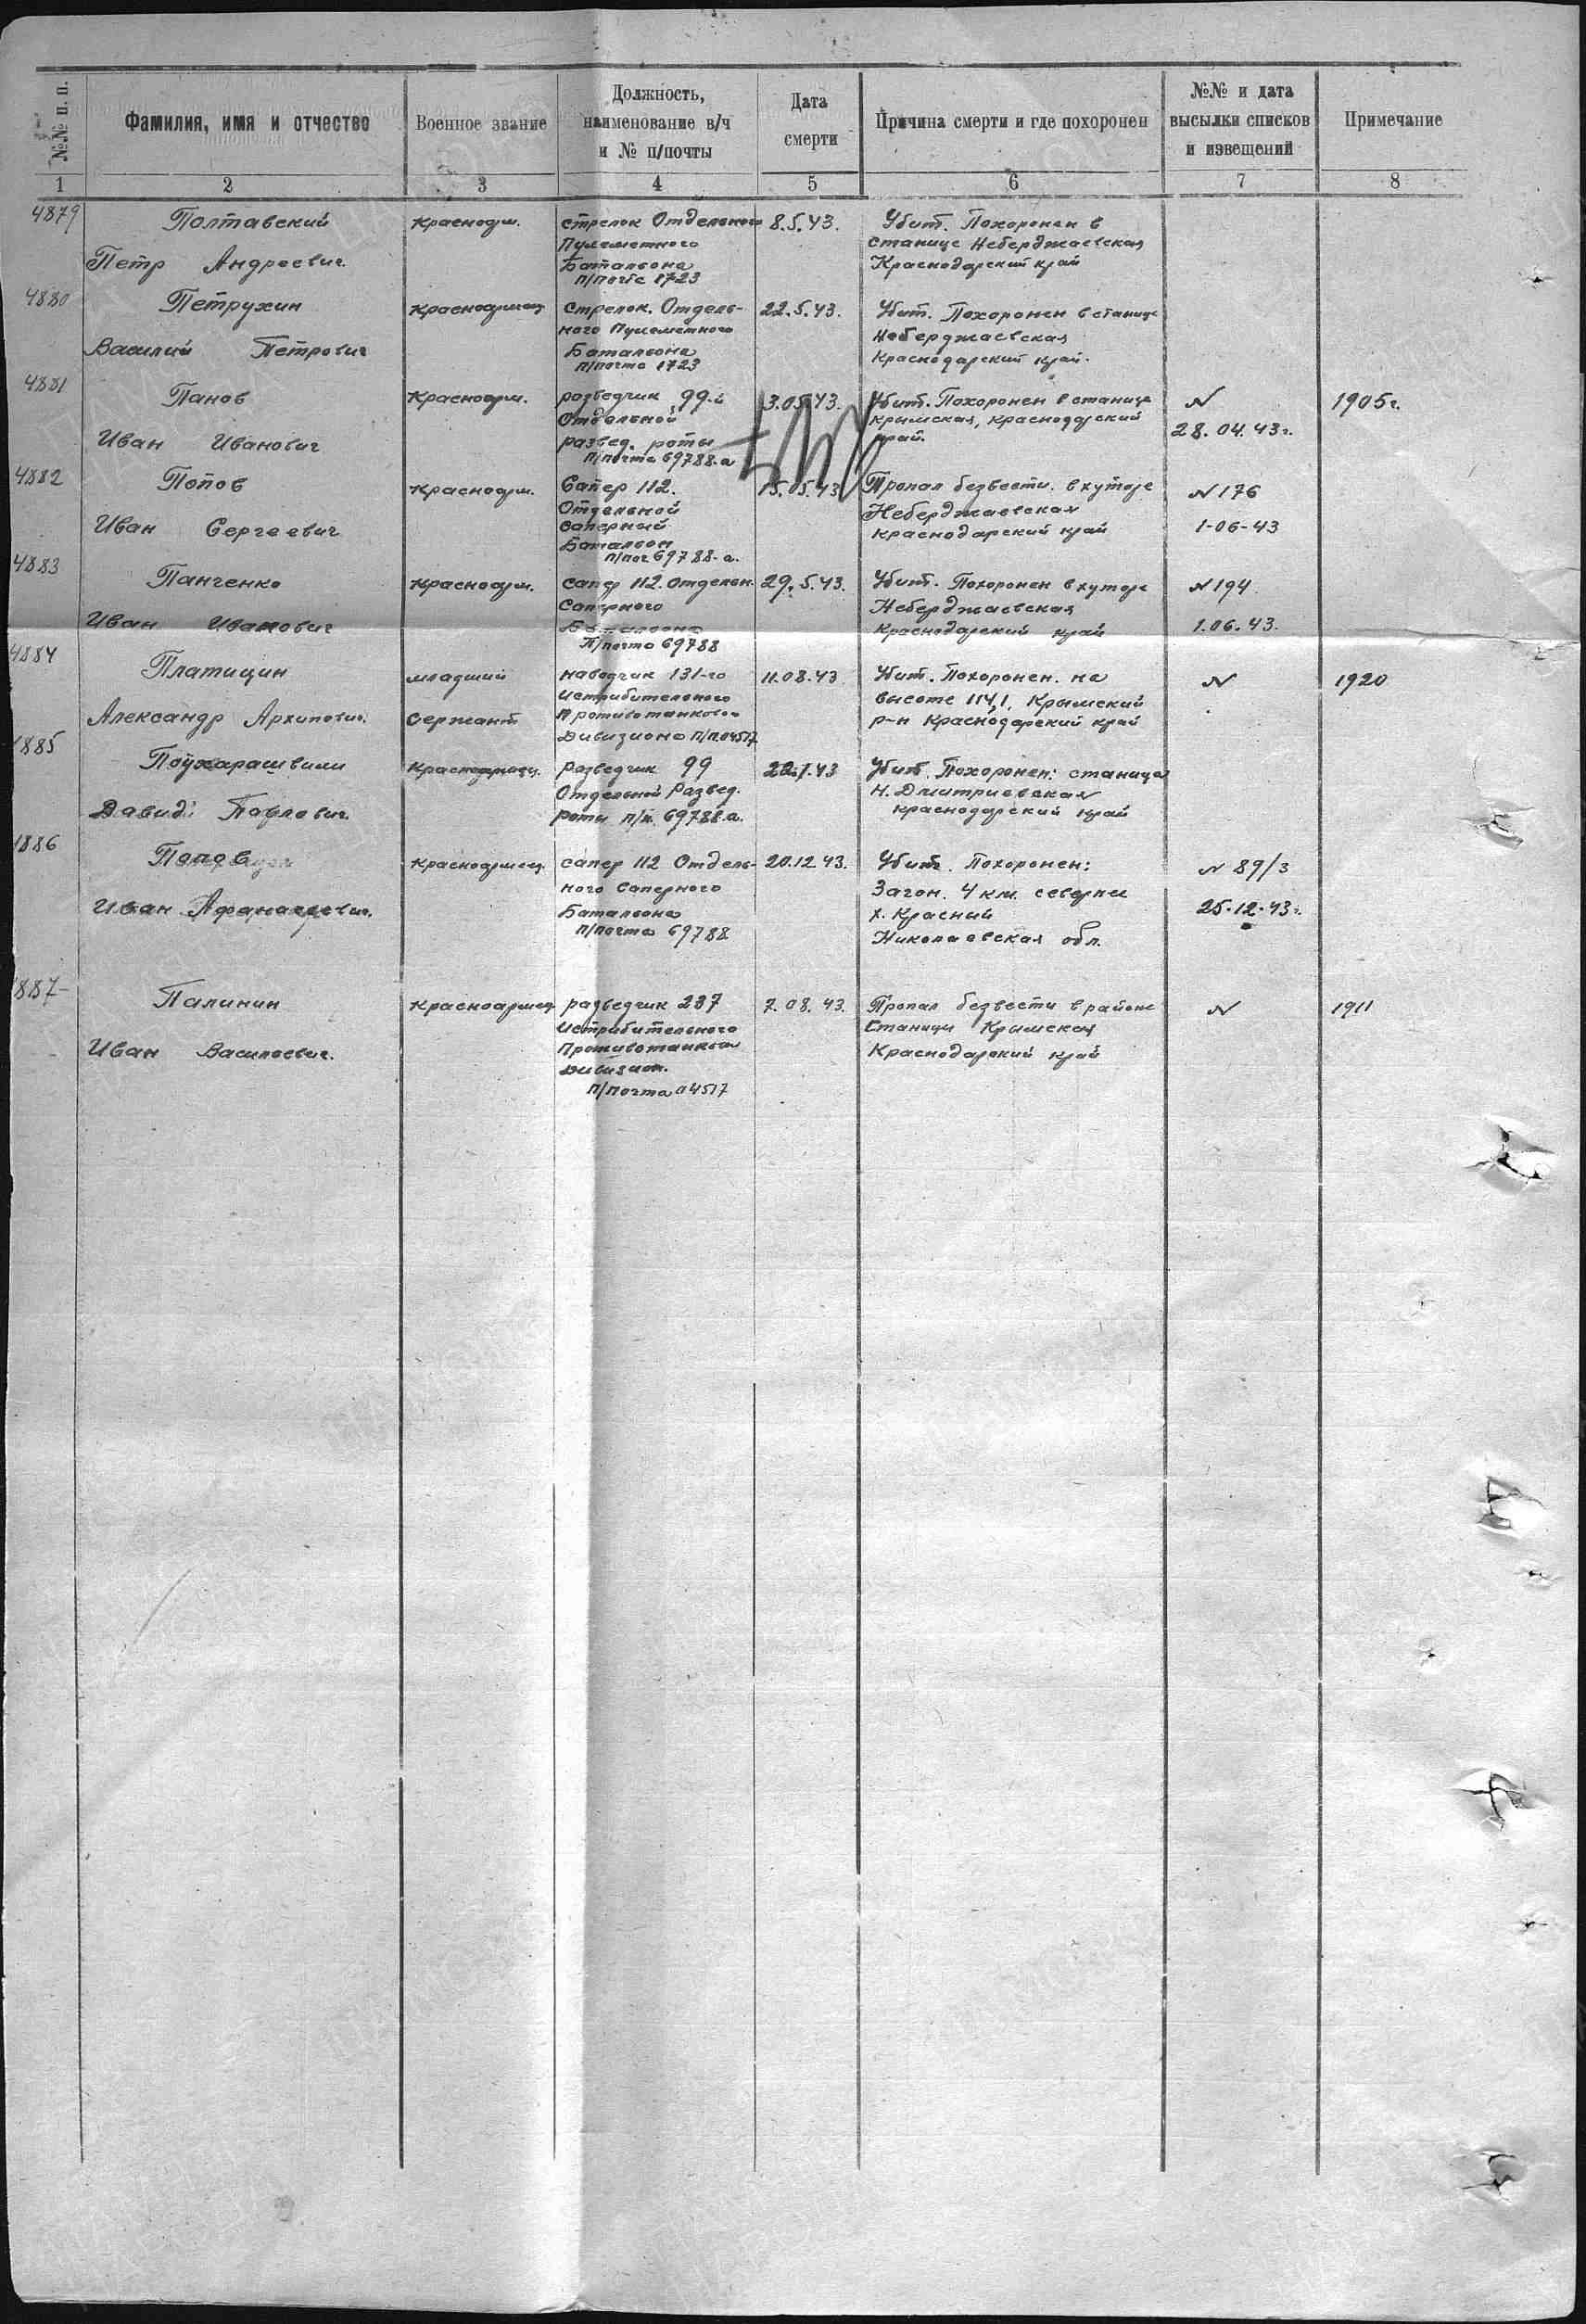 №№ п. п.
Фамилия, имя и отчество
Военное звание
Должность,
наименование в/ч
и № п/почты
Дата
смерти
Причина смерти и где похоронен
№№ и дата
высылки списков
и извещений
Примечание
1 2 3 4 5 6 7 8
4879 Полтавский Красноарм. стрелок Отдельного 8.5.43. Убит. Похоронен в
Пулеметного станице Неберджаевская
Петр Андреевич Батальона Краснодарский край
п/почта 1723
4880 Петрухин Красноармеец стрелок. Отдель- 22.5.43. Убит. Похоронен в станице
ного Пулеметного Неберджаевская
Василий Петрович Батальона Краснодарский край.
п/почта 1723
4881 Панов Красноарм. разведчик 99-й 3.05.43. Убит. Похоронен в станице N 1905г.
Отдельной Крымская, Краснодарский
Иван Иванович развед. роты край. 28.04.43г.
п/почта 69788-а
4882 Попов Красноарм. Сапер 112. 15.05.43 Пропал безвести в хуторе N 176
Отдельной Неберджаевская
Иван Сергеевич саперный Краснодарский край 1-06-43
Батальон
п/поч 69788-а.
4883 Панченко Красноарм. сапер 112. Отдельн. 29.5.43. Убит. Похоронен в хуторе N 194
Саперного Неберджаевская
Иван Иванович Батальона Краснодарский край 1.06.43.
П/почта 69788
4884 Платицин младший наводчик 131-го 11.08.43 Убит. Похоронен. на N 1920
Истребительного высоте 114,1, Крымский
Александр Архипович. сержант Противотанкового р-н Краснодарский край
Дивизиона п/п.04517
1885 Поцхарашвили Красноармеец. разведчик 99 Убит. Похоронен: станица
Отдельной Развед. Н. Дмитриевская
Давид Павлович. роты п/п. 69788.а. Краснодарский край
1886 Попов Красноармеец сапер 112 Отдель- 20.12.43. Убит. Похоронен: N 89/3
ного Саперного Загон. 4 км. севернее
Иван Афанасьевич. Батальона х. Красный 25.12.43г.
п/почта 69788 Николаевская обл.
887 Палинин Красноармеец разведчик 237 7.08.43. Пропал безвести в районе N 1911
Истребительного Станицы Крымская
Иван Васильевич. Противотанков Краснодарский край
Дивизион.
п/почта 04517